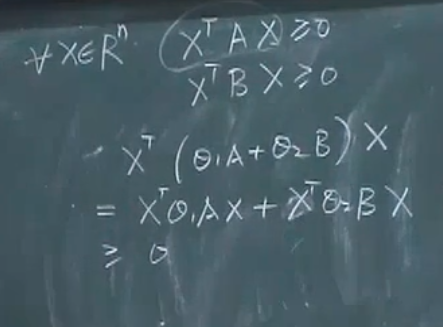 ∀ X∈Rⁿ. Xᵀ A X ≥ 0
Xᵀ B X ≥ 0
Xᵀ (θ₁A + θ₂B) X
= Xᵀθ₁AX + Xᵀθ₂BX
≥ 0